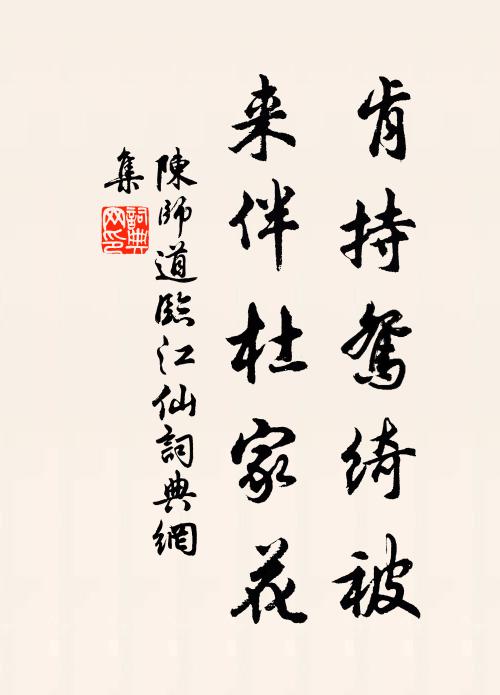 肯持駕綺被
来伴杜家花
陳師道臨江仙詞典網
集
詞典
网印